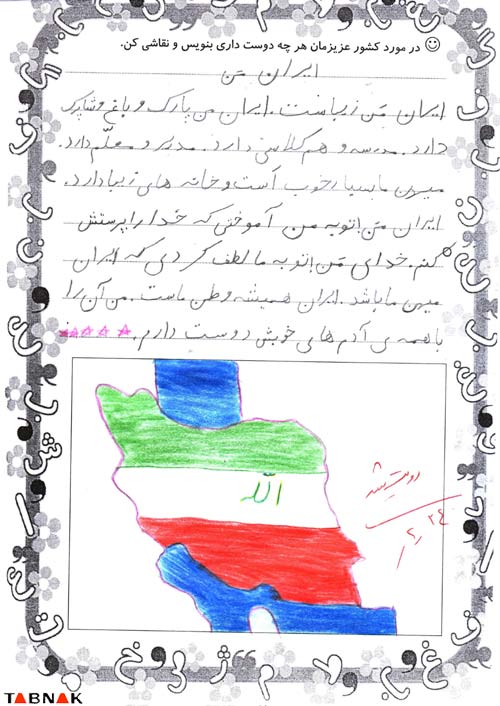 در مورد کشور عزیزمان هر چه دوست داری بنویس و نقاشی کن.
ایران من
ایران من زیباست. ایران من پارک و باغ و شاپرک
دارد. مدرسه و هم کلاسی دارد. مدیر و معلّم دارد.
میهن ما بسیار خوب است و خانه های زیبا دارد.
ایران من تو به من آموختی که خدا را پرستش
کنم. خدای من تو به ما لطف کردی که ایران
میهن ما باشد. ایران همیشه وطن ماست. من آن را
با همه ی آدم های خوبش دوست دارم.
الله
TABNAK